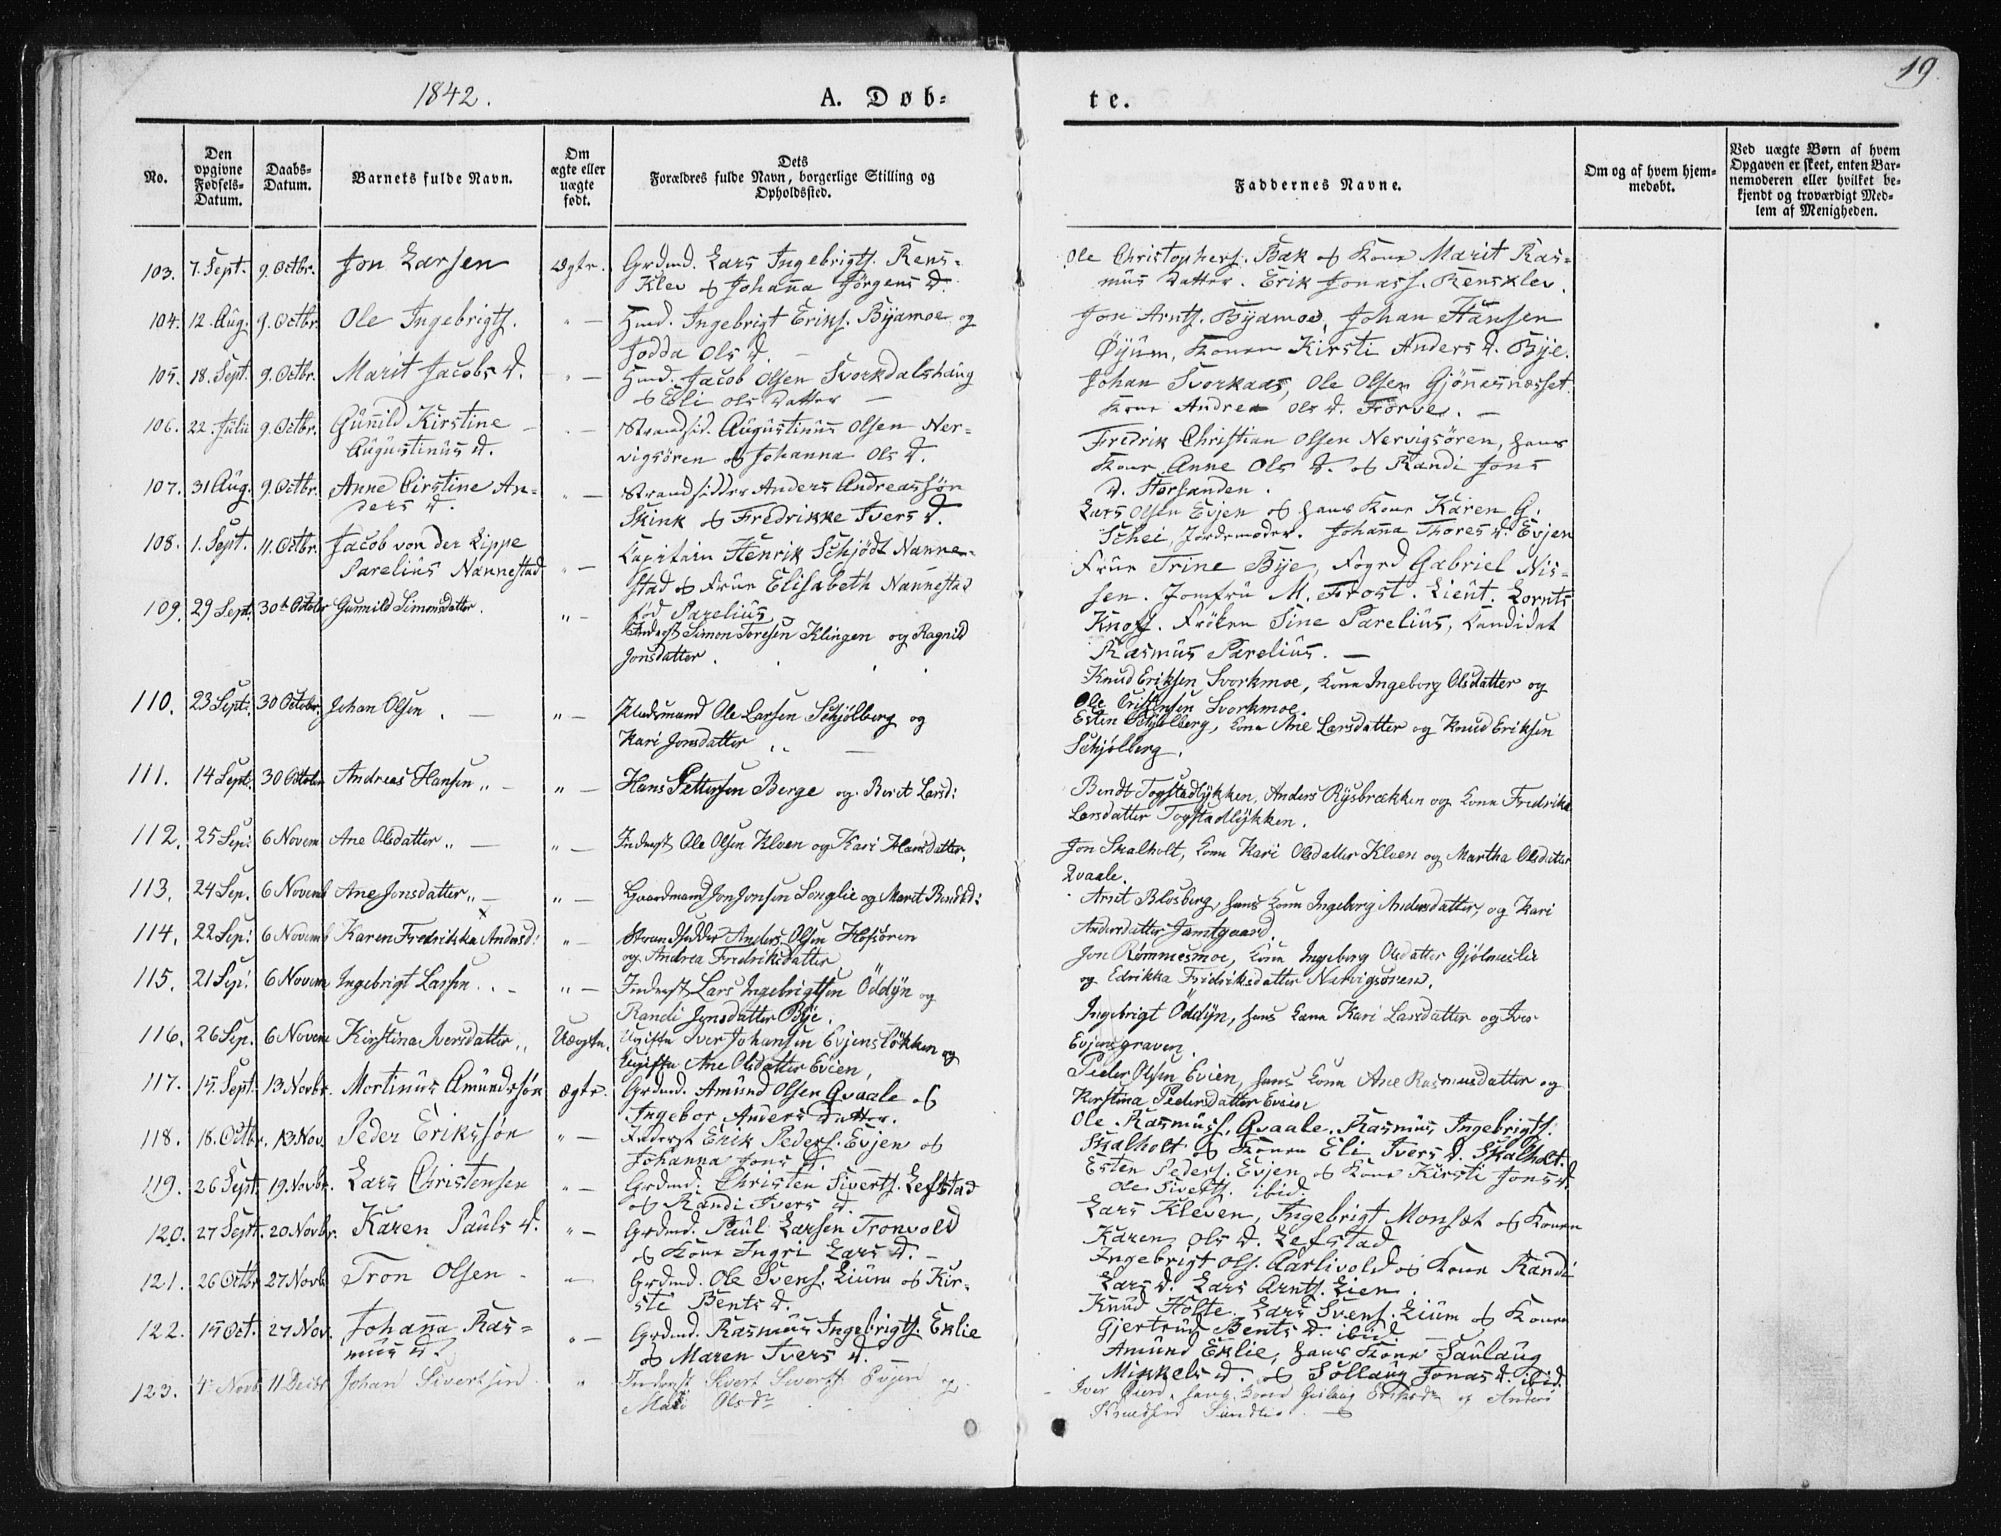 1842.
A. Døb-
te.
19.
No.
Den opgivne Fødsels-Datum.
Daabs-Datum.
Barnets fulde Navn.
Om ægte eller uægte født.
Dets Forældres fulde Navn, borgerlige Stilling og Opholdssted.
Faddernes Navne.
Om og af hvem hjemmedøbt.
Ved uægte Børn af hvem Opgaven er skeet, enten Barnemoderen eller hvilket bekjendt og troværdigt Medlem af Menigheden.
103. 7. Sept. 9. Octbr. Jon Larsen Ægte. Grdmd. Lars Ingebrigts. Rens-
Klev & Johanna Jörgens D.
Ole Christophers. Bak & Kone Marit Ras-
mus Datter. Erik Jonass. Rensklev.
104. 12. Aug. 9. Octbr. Ole Ingebrigts. " — Hmd. Ingebrigt Eriks. Byamoe og
Jodda Ols D. —
Jon Arnts. Byamoe, Johan Hansen
Öyum, Konen Kirsti Anders D. Bye.
105. 18. Sept. 9. Octbr. Marit Jacobs D. " — Hmd. Jacob Olsen Svorkdalshaug
& Eli Ols Datter —
Johan Svorkaas, Ole Olsen Gjönnesnæsset
Kone Andrea Ols D. Förve. —
106. 22. Julii 9. Octbr. Gunild Kirstine — " — Strandsid. Augustinus Olsen Ner-
Augustinus D. vigsören & Johanna Ols D.
Fredrik Christian Olsen Nervigsören, hans
Kone Anne Ols D. & Randi Jons
D. Storsanden.
107. 31 Aug. 9. Octbr. Anne Cirstine An- " — Strandsidder Anders Andreassön
ders D. Skink & Fredrikke Ivers D.
Lars Olsen Evjen & hans Kone Karen G.
Schei, Jordemoder. Johanna Thores D. Evjen
108. 1. Sept. 11. Octbr. Jacob von der Lippe
Parelius Nannestad " — Capitain Henrik Schjödt Nanne-
stad & Frue Elisabeth Nannestad
föd Parelius
Frue Trine Bye, Fogd Gabriel Nis-
sen. Jomfru M. Frost. Lieut. Lornts
Knoff. Fröken Sine Parelius, Candidat
Rasmus Parelius. —
109. 29 Sept. 30t Octobr Gunnild Simonsdatter. " — Inderst Simon Toresen Klingen og Ragnild
Jonsdatter.
Knud Eriksen Svorkmoe, Kone Ingeborg Olsdatter og
Ole Svorkmoe.
110. 23 Sept. 30 Octobr. Johan Olsen. — " — Pladsmand Ole Larsen Schjølberg og
Kari Jonsdatter " —
Esten Schjølberg, Kone Ane Larsdatter og Knud Eriksen
Schjølberg.
111. 14 Sept. 30 Octobr Andreas Hansen " — " — Hans Pettersen Berge og Berit Larsd:
Bendt Togstadlykken, Anders Rysbrækken og Kone Fredrikke
Larsdatter Togstadlykken.
112. 25 Sep: 6 Novem Ane Olsdatter " — " — Inderst Ole Olsen Kleven og Kari Hansdatter.
Jon Skalholt, Kone Kari Olsdatter Kleven og Martha Olsdatter
Qvaale.
113. 24 Sep. 6 Novemb Ane Jonsdatter " — " — Gaardmand Jon Jonsen Songlie og Marit
Arnt Blosberg, hans Kone Ingeborg Andersdatter, og Kari
Andersdatter Jamtgaard
114. 22 Sep: 6 Novemb Karen Fredrikka Andersd: " — Strandsidder Anders Olsen Hofsören
og Andrea Fredriksdatter
Jon Rømmesmoe, Kone Ingeborg Olsdatter Gjølmeslie
og Edrikka Fredriksdatter Nærvigsören.
115. 21 Sep: 6 Novem Ingebrigt Larsen " — " — Inderst Lars Ingebrigtsen Öddÿn og
Randi Jonsdatter Bye.
Ingebrigt Öddÿn, hans Kone Kari Larsdatter og Iver
Evjensgraven.
116. 26 Sep. 6 Novem Kirstina Iversdatter " Uægte. Ugifte Iver Johansen Evjensløkken og
Ugifte Ane Olsdatter Evien.
Peder Olsen Evien, hans Kone Ane Rasmusdatter og
Kirstina Pedersdatter Evien
117. 15. Sept. 13. Novbr. Mortinus Amundssön ægte. Grdmd. Amund Olsen Qvaale &
Ingebor Anders Datter.
Ole Rasmuss. Qvaale. Rasmus Ingebrigts.
Skalholt & Konen Eli Ivers D. Skalholt.
118. 18. Octbr. 13 Nov. Peder Erikssön " — Inderst Erik Peders. Evjen &
Johanna Jons D.
Esten Peders. Evjen & Kone Kirsti Jons D.
Ole Siverts. ibid.
119. 26 Sept. 19 Novbr. Lars Christensen " — Grdmd. Christen Siverts. Lefstad
& Randi Ivers D.
Lars Kleven, Ingebrigt Monset & Konen
Karen Ols D. Lefstad
120. 27 Sept. 20 Novbr. Karen Pauls D. " — Grdmd. Paul Larsen Tronvold
& Kone Ingri Lars D. —
Ingebrigt Ols. Aarlivold & Kone Randi
Lars D. Lars Arnts. Lien.
121. 26 Octbr. 27 Novb. Tron Olsen — " — Grdmd. Ole Svens. Lium & Kir-
sti Bents D.
Knud Holte. Lars Svens. Lium & Kone
Gjertrud Bents D. ibid.
122. 15 Oct. 27 Nov. Johanna Ras- " — Grdmd. Rasmus Ingebrigts. Eklie
mus D. & Maren Ivers D.
Amund Eklie, hans Kone Saulaug
Mikkels D. & Sollaug Jonas D. ibid.
123. 4. Novb. 11 Decbr Johan Sivertsen " Inderst Sivert Siverts. Evjen og
Mali Olsdr
Iver hans Kone Eriksdr og Anders
Knudsen